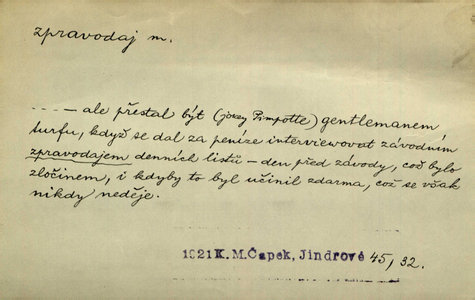 zpravodaj m.
.... – ale přestal být (jockey Pimpotte) gentlemanem
turfu, když se dal za peníze interviewovat závodním
zpravodajem denních listů – den před závody, což bylo
zločinem, i kdyby to byl učinil zdarma, což se však
nikdy neděje.
1921 K. M. Čapek, Jindrové 45/32.